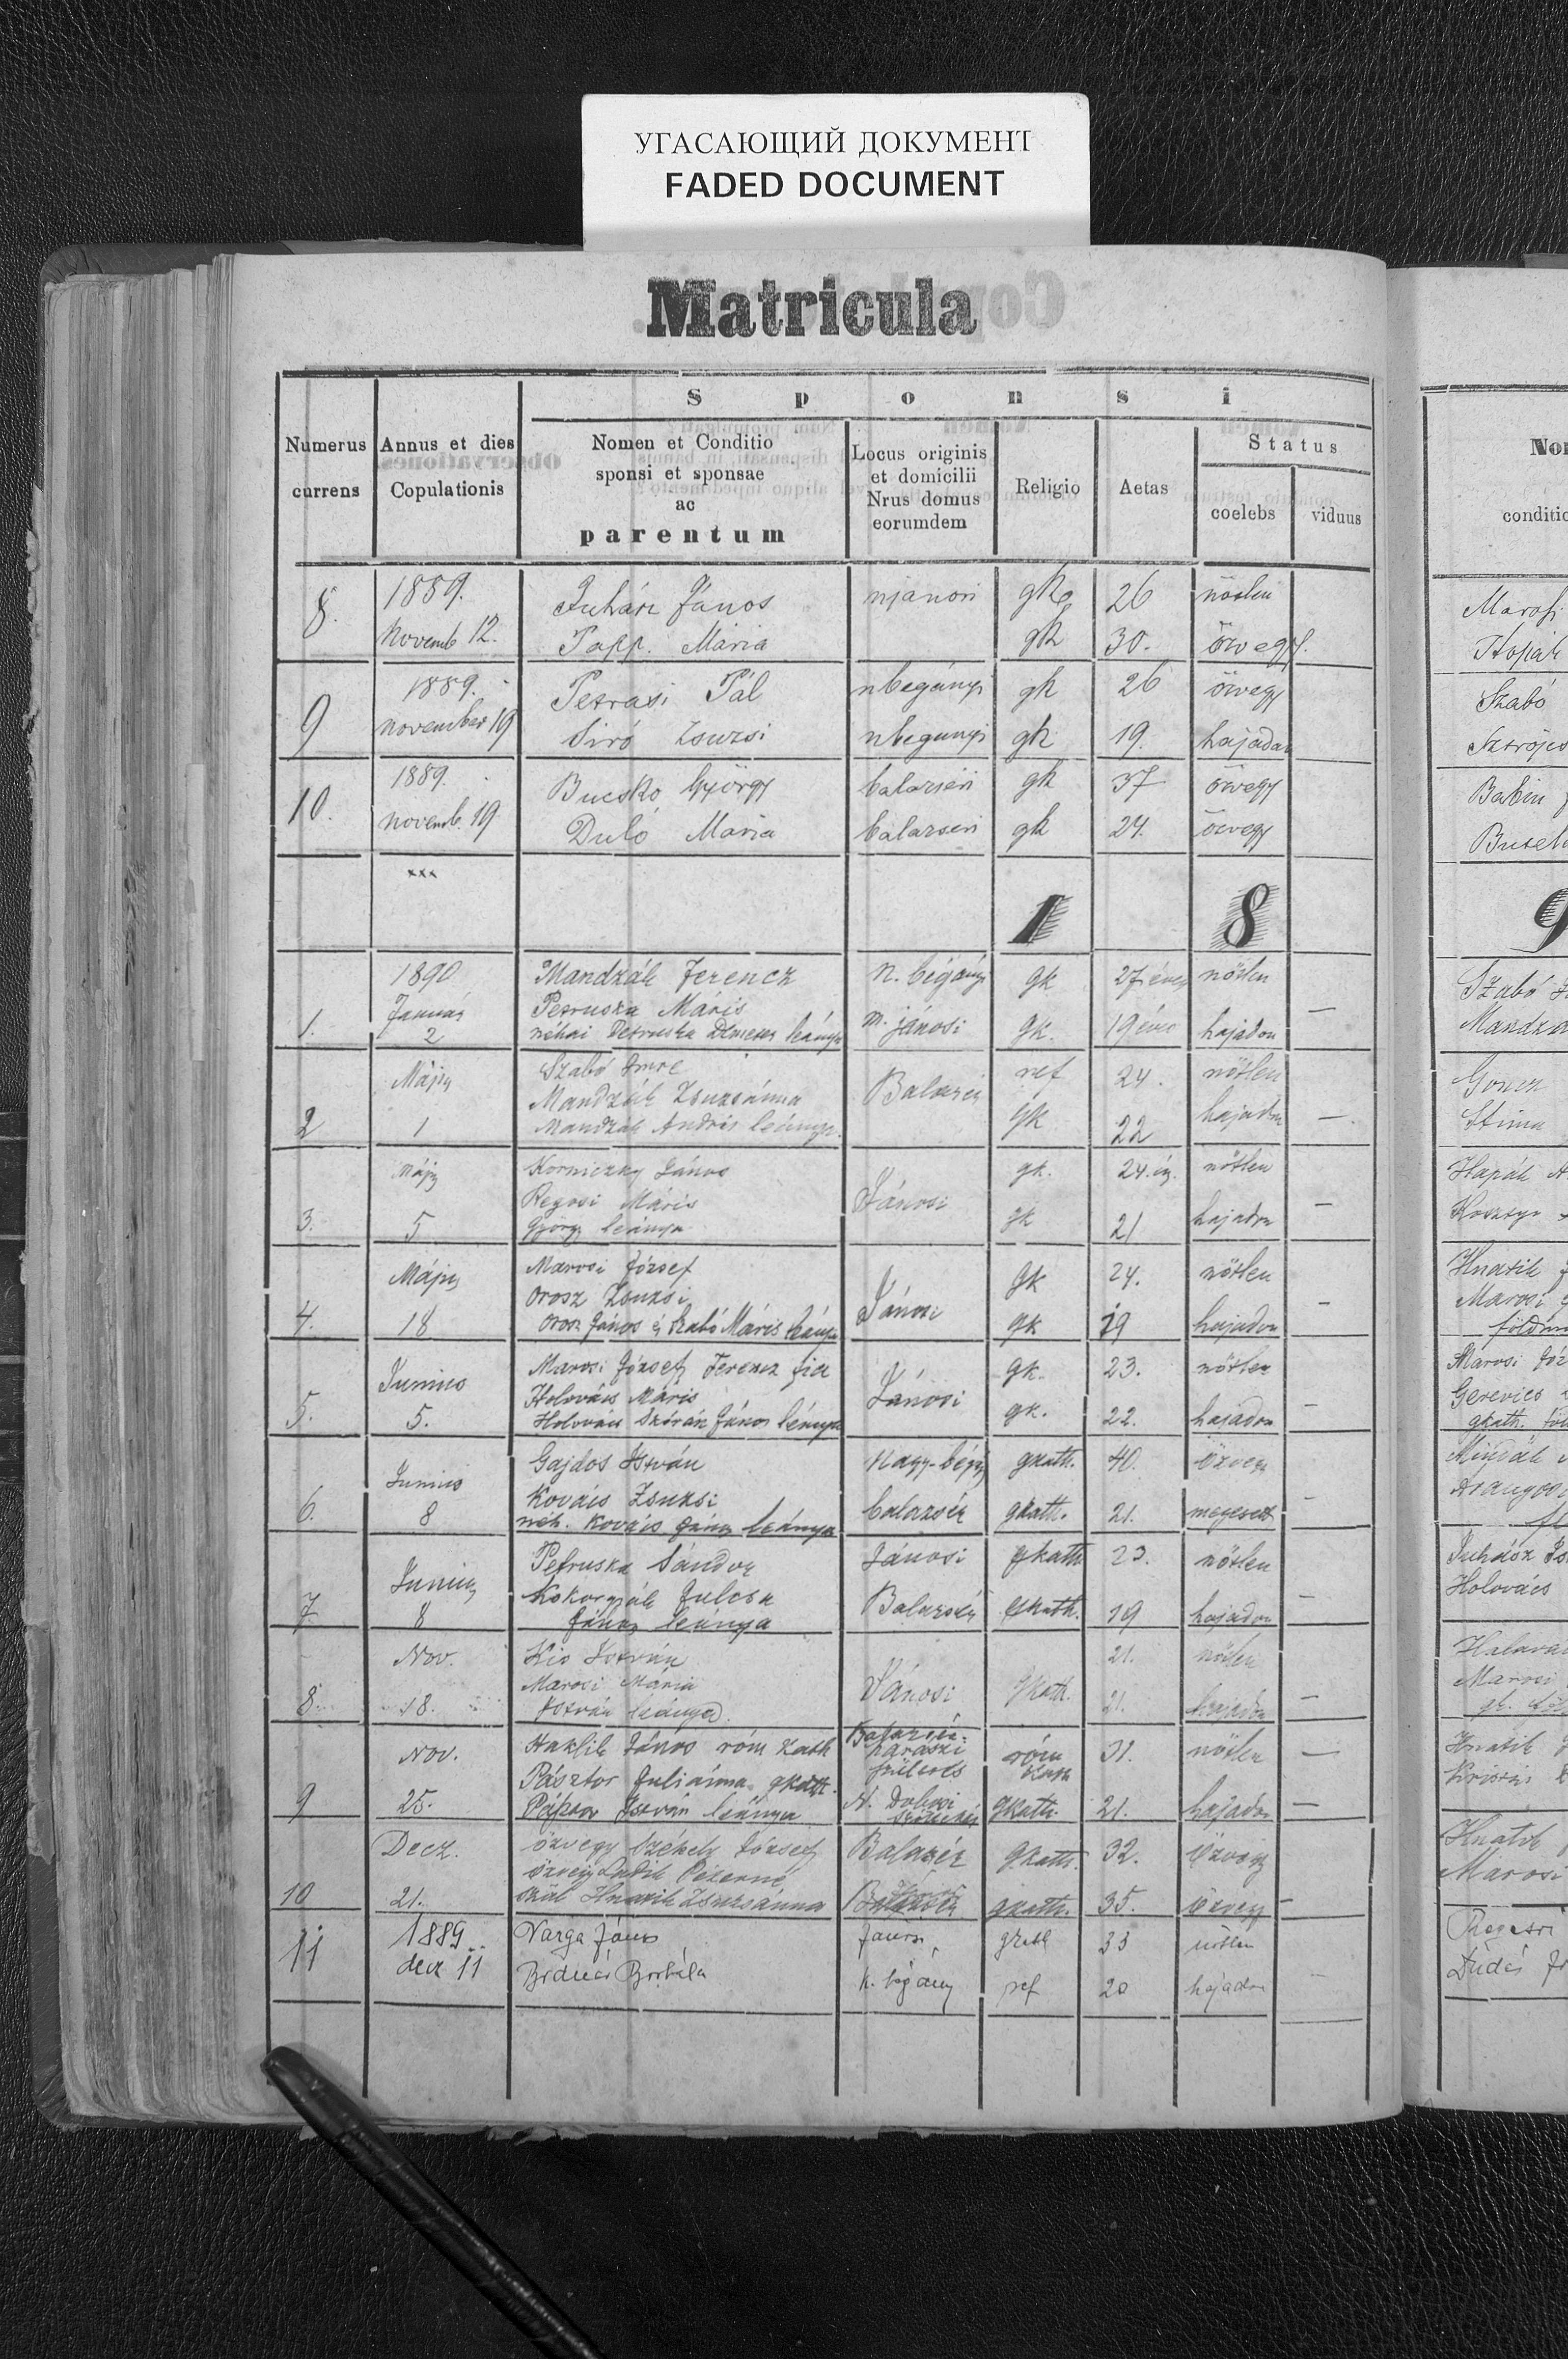 УГАСАЮЩИЙ ДОКУМЕНТ
FADED DOCUMENT
Matricula
Sponsi
Numerus currens
Annus et dies Copulationis
Nomen et Conditio sponsi et sponsae ac parentum
Locus originis et domicilii Nrus domus eorumdem
Religio
Aetas
Status
coelebs
viduus
8. 1889. János gk 26 nőtlen
Novemb 12. Papp. Mária gk 30. özvegy.
9 1889. Petrasi Pál nbegányi gk 26 özvegy
november 19 Siró Zsuzsi nbegányi gk 19. hajadon
10. 1889. Bucsko György balazséri gk 37 özvegy
novemb. 19 Duló Maria balazséri gk 27. özvegy
xxx
1 8 9
1. 1890 Mandzák Ferencz N. bégányi gk 27 éves nőtlen
Január Petruska Máris m. jánosi gk. 19 éves hajadon —
2 néhai Petruska Demeter leánya
2 Május Szabó Imre Balazsér ref 24. nőtlen
Mandzák Zsuzsánna gk 22 hajadon —
1 Mandzák András leánya.
3. Május Korniczky János Jánosi gk. 24. nőtlen
Regosi Máris gk 21 hajadon —
5 György leánya
4. Május Marosi József Jánosi gk 24. nőtlen
Orosz Zsuzsi gk 19 hajadon —
18 Orosz János és Szabó Máris leánya
5. Junius Marosi József Ferencz fia Jánosi gk. 23. nőtlen
Holovács Máris gk. 22. hajadon —
5. Holovács János leánya
6. Junius Gajdos István Nagy-bégány gkath. 40. özvegy
Kovács Zsuzsi balazsér gkath. 21. megesett —
8 néh. Kovács János leánya
7 Junius Petruska Sándor Jánosi gkath 23. nőtlen
Julcsa Balazsér gkath. 19 hajadon —
8 János leánya
8. Nov. Kis István Jánosi gkath. 21. nőtlen
Marosi Mária 21. hajadon —
18. István leánya.
9 Nov. Haklik János róm kath Balazsér róm kath 31. nőtlen —
Pásztor Juliánna gkath. N. Dobosi gkath. 21. hajadon —
25. Pásztor István leánya
10 Decz. özvegy Székely József Balazsér gkath. 32. özvegy
özvegy
21. szül Hnatik Zsuzsánna gkath. 35. özvegy —
11 1889 Varga János Jánosi gkath 33 nőtlen
decz 11 Borbála k. bégány ref 20 hajadon —
Szabó
Babin
Szabó
Marosi
Hnatik
Marosi
Marosi
Gerevics
Holovács
Marosi
Hnatik
Hnatik
Marosi